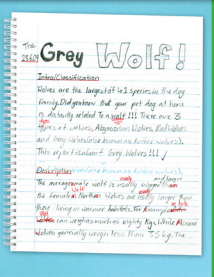 The
Grey Wolf!
Intro/Classification
Wolves are the largest of 41 species in the dog
family. Did you know that your pet dog at home
is distantly related to a wolf!!! There are 3
types of wolves, Abyssinian Wolves, Red wolves
and Grey wolves (also known as timber wolves).
This report is about Grey Wolves!!!
Description
The average male wolf is usually bigger than
the female. Northern Wolves are usually larger than
those living in warmer habitats. For example
can weigh as much as eighty kg. While
Wolves generally weigh less than 35 kg. The